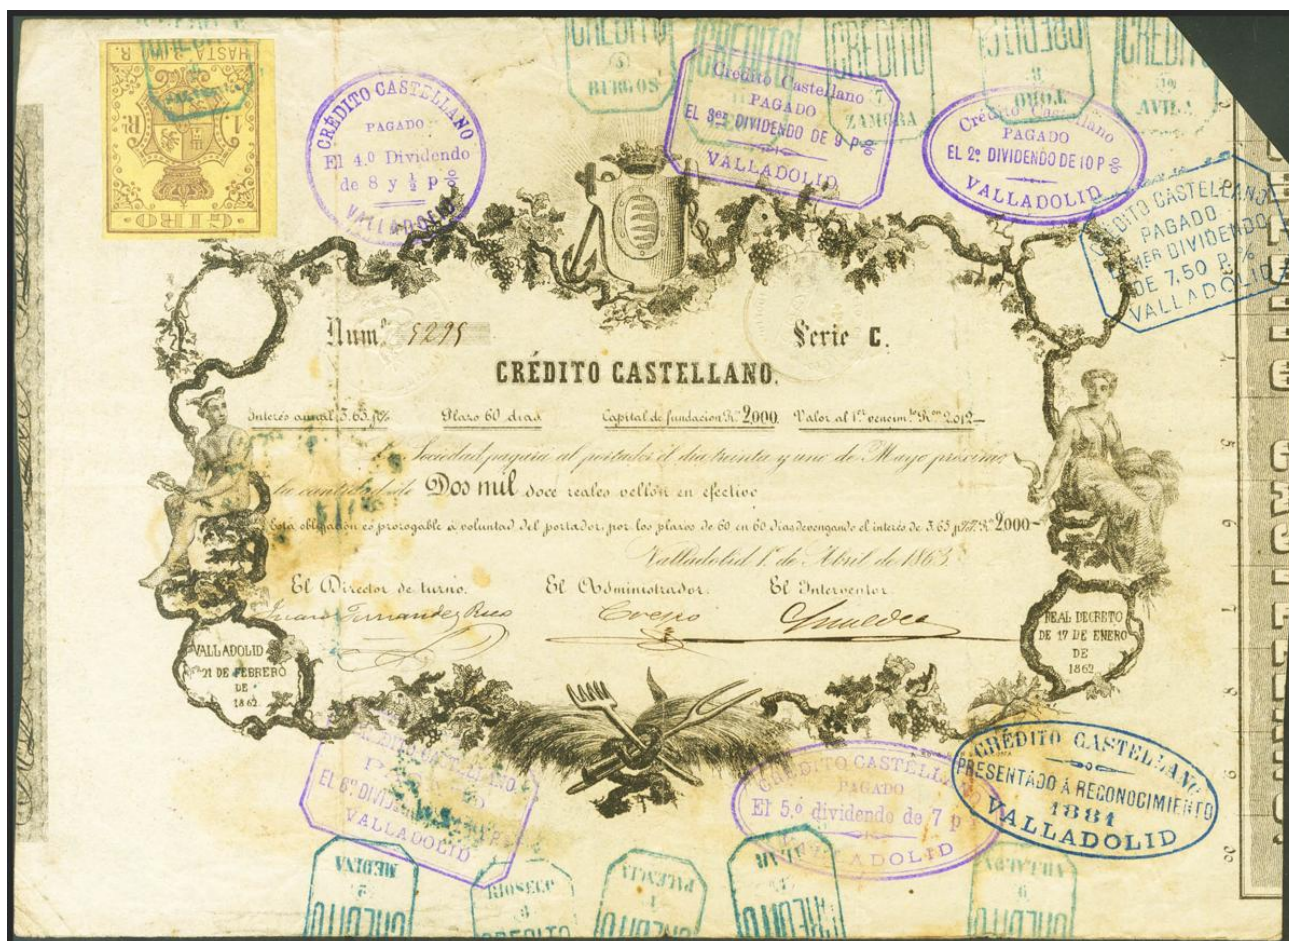 CRÉDITO
5
BURGOS
CRÉDITO
CRÉDITO
7
ZAMORA
CRÉDITO
8
TORO
CRÉDITO
10
AVILA
HASTA 2 R.
1 Rl.
GIRO
CRÉDITO CASTELLANO
PAGADO
El 4.º Dividendo
de 8 y ½ p %
VALLADOLID
Crédito Castellano
PAGADO
EL 3er DIVIDENDO DE 9 P %
VALLADOLID
Crédito Castellano
PAGADO
EL 2º DIVIDENDO DE 10 P %
VALLADOLID
CRÉDITO CASTELLANO
PAGADO
DIVIDENDO
DE 7,50 P. %
VALLADOLID
Num.º 5295
Serie C.
CRÉDITO CASTELLANO.
Interés anual 3.65 p%
Plazo 60 dias
Capital de fundacion R.s 2,000
Valor al 1.er vencim.to R.s vn 2.012
La Sociedad pagará al portador el dia treinta y uno de Mayo próximo
la cantidad de Dos mil doce reales vellón en efectivo
Esta obligación es prorogable á voluntad del portador, por los plazos de 60 en 60 dias devengando el interés de 3.65 p% R.s 2000
Valladolid 1.º de Abril de 1863.
El Director de turno.
El Administrador.
El Interventor.
Fernandez Rico
Crespo
VALLADOLID
21 DE FEBRERO
DE
1862.
REAL DECRETO
DE 17 DE ENERO
DE
1862
CRÉDITO CASTELLANO
PAGADO
EL 6º DIVIDENDO
VALLADOLID
CRÉDITO CASTELLANO
PAGADO
El 5.º dividendo de 7 p
VALLADOLID
CRÉDITO CASTELLANO
PRESENTADO Á RECONOCIMIENTO
1881
VALLADOLID
MEDINA
CRÉDITO
RIOSECO
CRÉDITO
PALENCIA
CRÉDITO
CRÉDITO
CRÉDITO
5
6
7
8
9